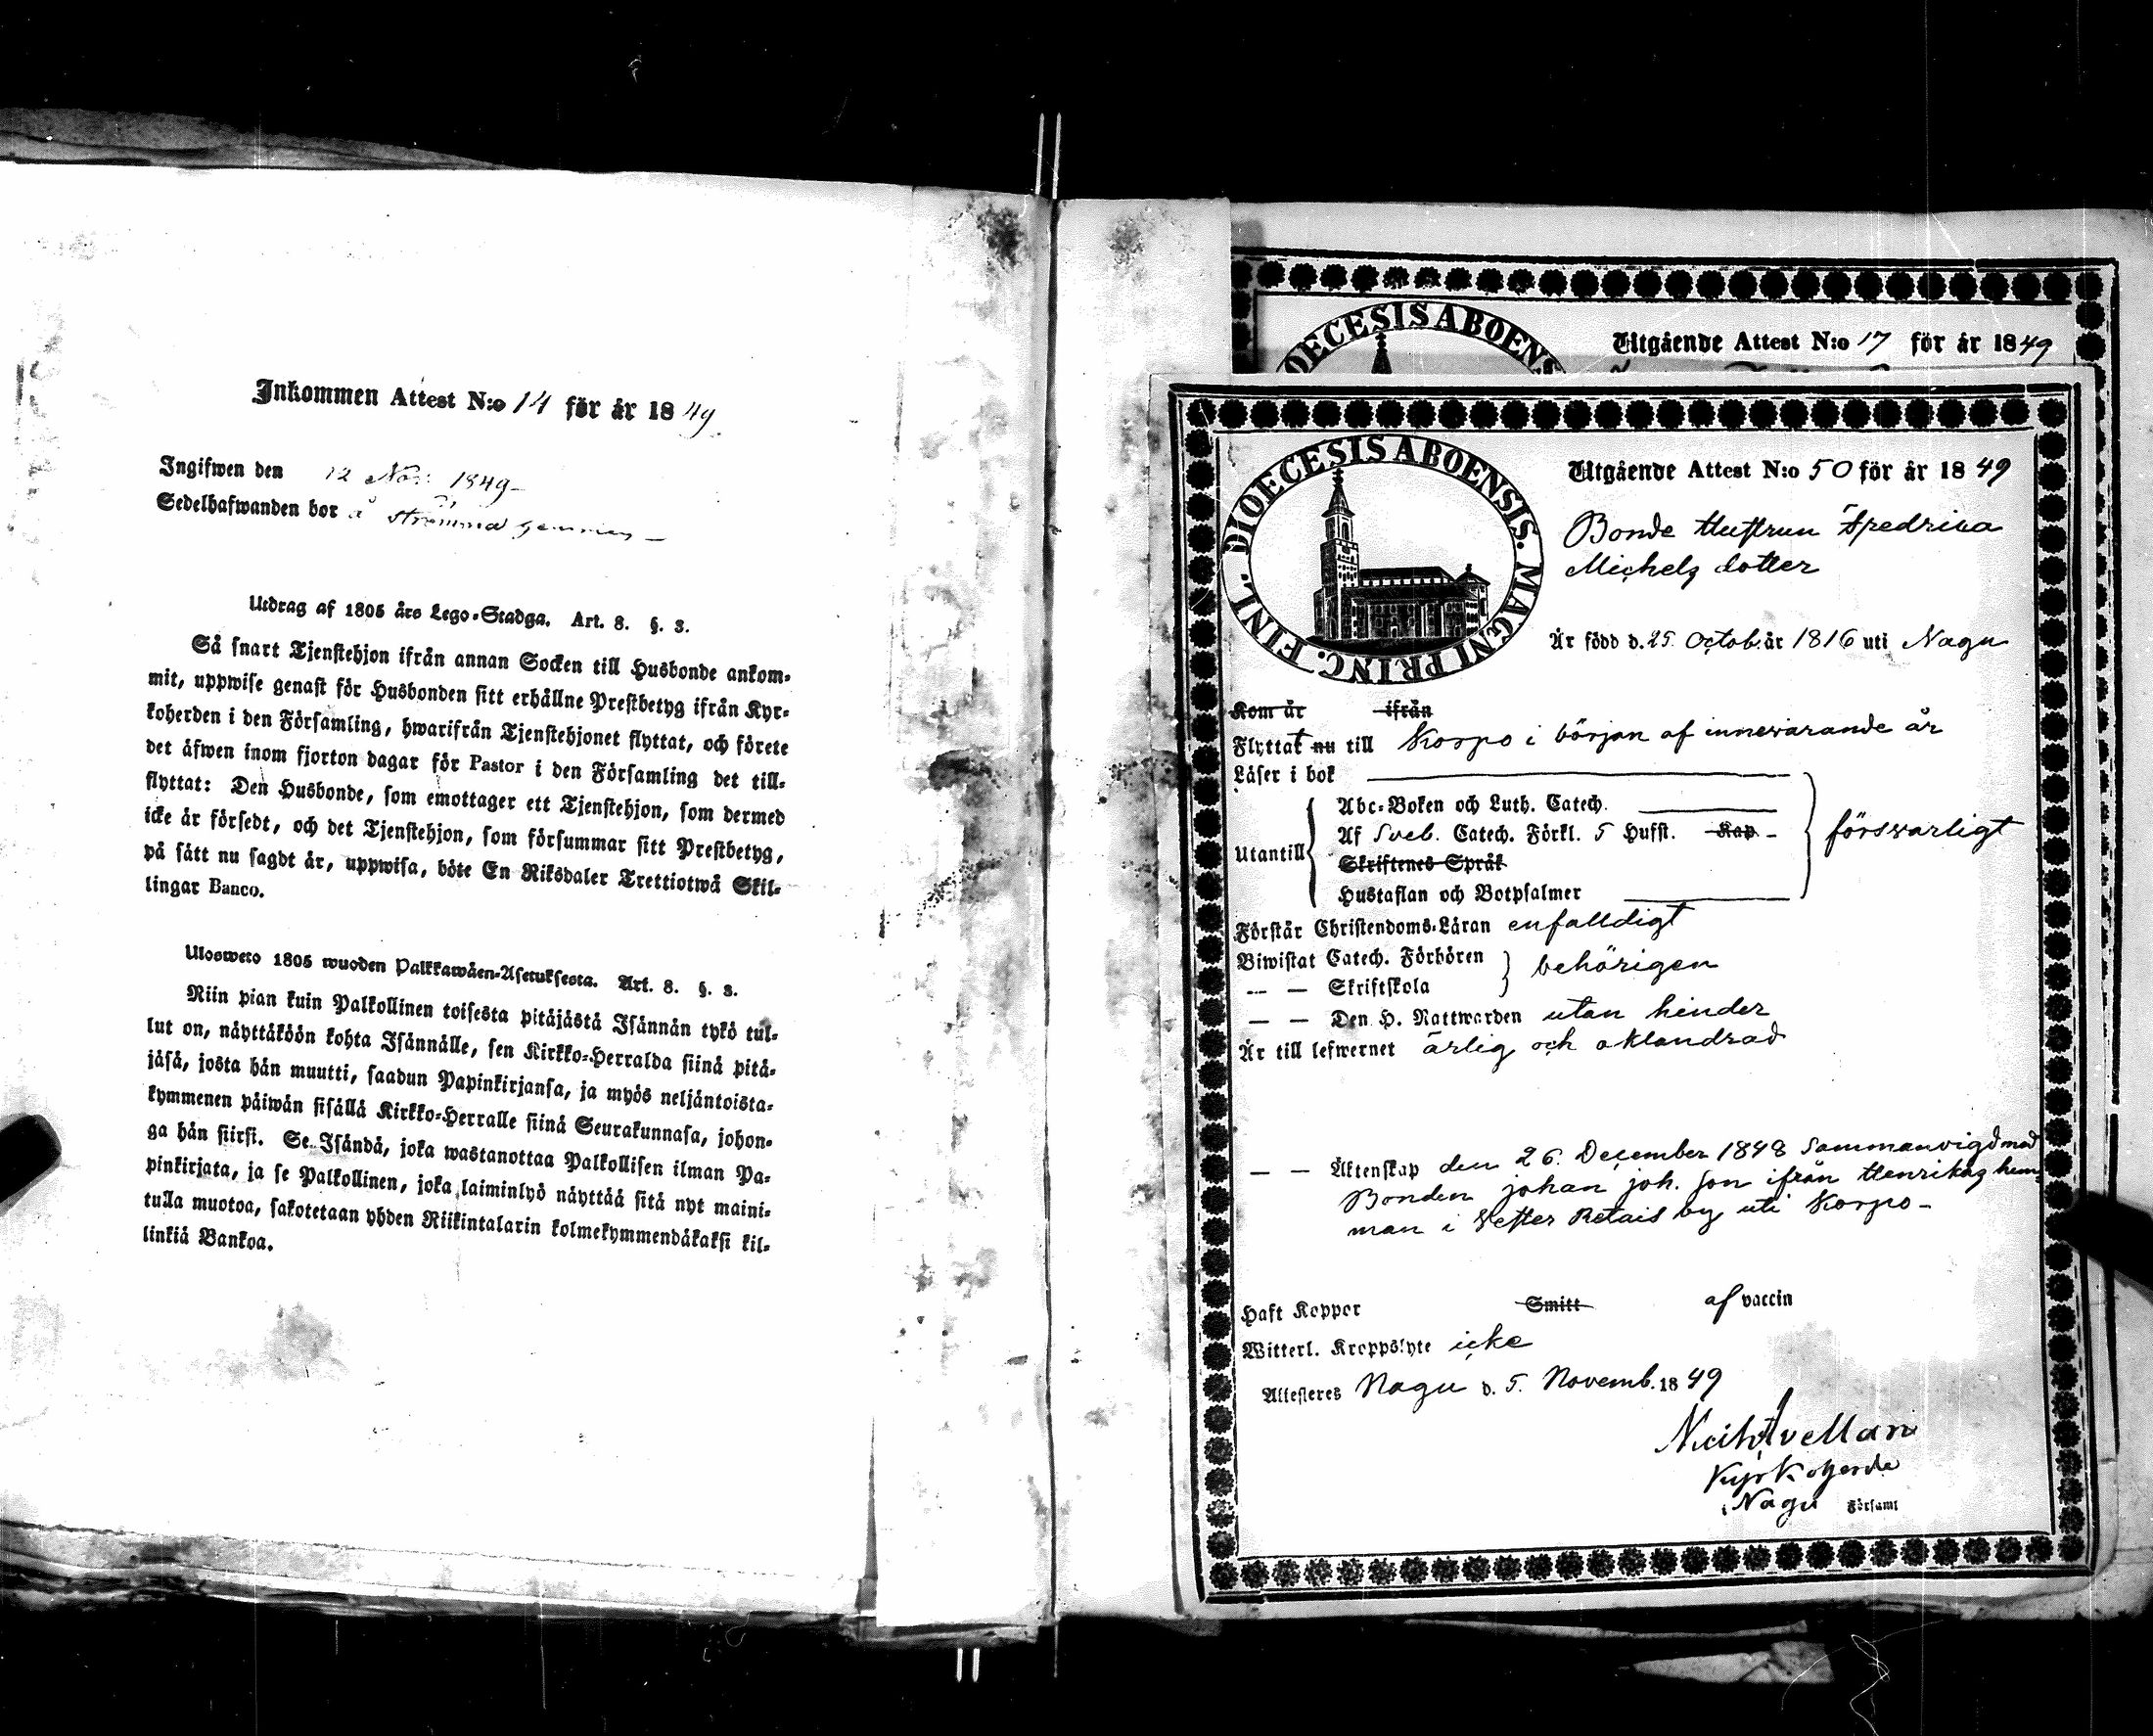 Inkommen Attest N:o 14 för år 1849
Ingifwen den 12 Nov: 1849
Sedelhafwanden bor å
Utdrag af 1805 års Lego-Stadga. Art. 8. §. 3.
Så snart Tjenstehjon ifrån annan Socken till Husbonde ankom-
mit, uppwise genast för Husbonden sitt erhållne Prestbetyg ifrån Kyr-
koherden i den Församling, hwarifrån Tjenstehjonet flyttat, och förete
det äfwen inom fjorton dagar för Pastor i den Församling det till-
flyttat: Den Husbonde, som emottager ett Tjenstehjon, som dermed
icke är försedt, och det Tjenstehjon, som försummar sitt Prestbetyg,
på sätt nu sagdt är, uppwisa, böte En Riksdaler Trettiotwå Skil-
lingar Banco.
Uloswето 1805 wuoden Palkkawäen-Asetuksesta. Art. 8. §. 3.
Niin pian kuin Palkollinen toisesta pitäjästä Isännän tykö tul-
lut on, näyttäköön kohta Isännälle, sen Kirkko-Herralda siinä pitä-
jäsä, josta hän muutti, saadun Papinkirjansa, ja myös neljäntoista-
kymmenen päiwän sisällä Kirkko-Herralle siinä Seurakunnasa, johon-
ga hän siirsi. Se Isändä, joka wastanottaa Palkollisen ilman Pa-
pinkirjata, ja se Palkollinen, joka laiminlyö näyttää sitä nyt maini-
tulla muotoa, sakotetaan yhden Riikintalarin kolmekymmendäkaksi kil-
linkiä Bankoa.
DIOECESIS ABOENS
Utgående Attest N:o 17 för år 1849
DIOECESIS ABOENSIS. MAGNI PRINC. FINL.
Utgående Attest N:o 50 för år 1849
Bonde Hustrun Fredrica
Michels dotter
Är född d. 25 Octob. år 1816 uti Nagu
Kom år ifrån
Flyttat nu till Korpo i början af innevarande år
Läser i bok
Abc-Boken och Luth. Catech.
Utantill Af Sveb. Catech. Förkl. 5 Hufst. Kap
försvarligt
Skriftenes Språk
Hustaflan och Botpsalmer
Förstår Christendoms-Läran enfalldigt
Biwistat Catech. Förhören behörigen
— — Skriftskola
— — Den H. Nattwarden utan hinder
Är till lefwernet ärlig och oklandrad
— — Äktenskap den 26. December 1848 Sammanvigd med
Bonden Johan Joh. Son ifrån Henrikas hem-
man i Vester Retais by uti Korpo -
Haft Koppor Smitt af vaccin
Witterl. Kroppslyte icke
Attesteres Nagu d. 5. Novemb. 1849
Avellan
Kyrkoherde
i Nagu Församl